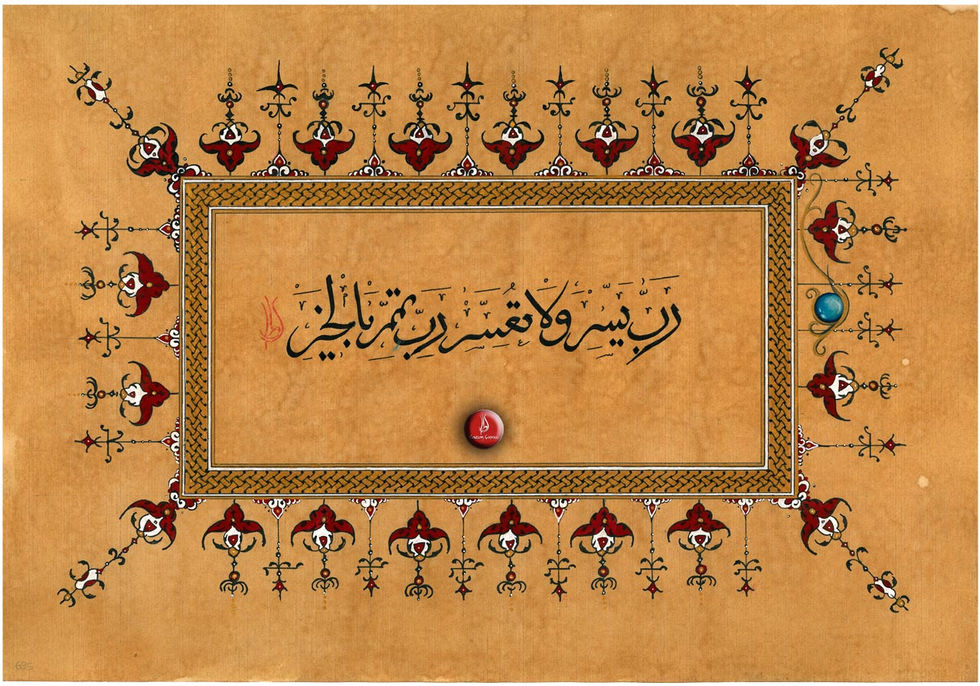 رَبِّ يَسِّرْ وَلَا تُعَسِّرْ رَبِّ تَمِّمْ بِالْخَيْرِ
685